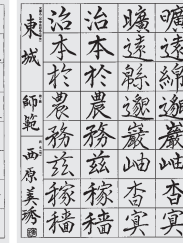 曠遠綿邈巖岫杳冥
曠遠緜邈巖岫杳冥
治本於農務茲稼穡
治本於農務茲稼穡
東城 師範 西原美琇